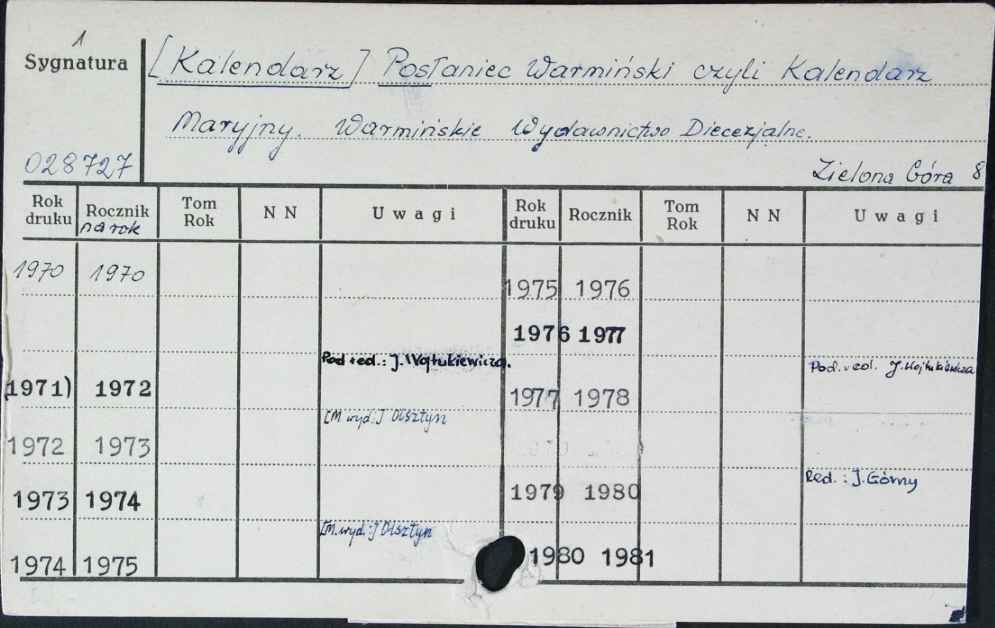 1
Sygnatura
[Kalendarz] Posłaniec Warmiński czyli Kalendarz
Maryjny. Warmińskie Wydawnictwo Diecezjalne.
028727
Zielona Góra 8
Rok druku Rocznik na rok Tom Rok NN Uwagi Rok druku Rocznik Tom Rok NN Uwagi
1970 1970
1975 1976
1976 1977
Pod red.: J. Wojtukiewicza.
Pod. red. J. Wojtukiewicza
(1971) 1972
1977 1978
[M. wyd.:] Olsztyn
1972 1973
Red.: J. Górny
1973 1974
1979 1980
[M. wyd.:] Olsztyn
1974 1975
1980 1981